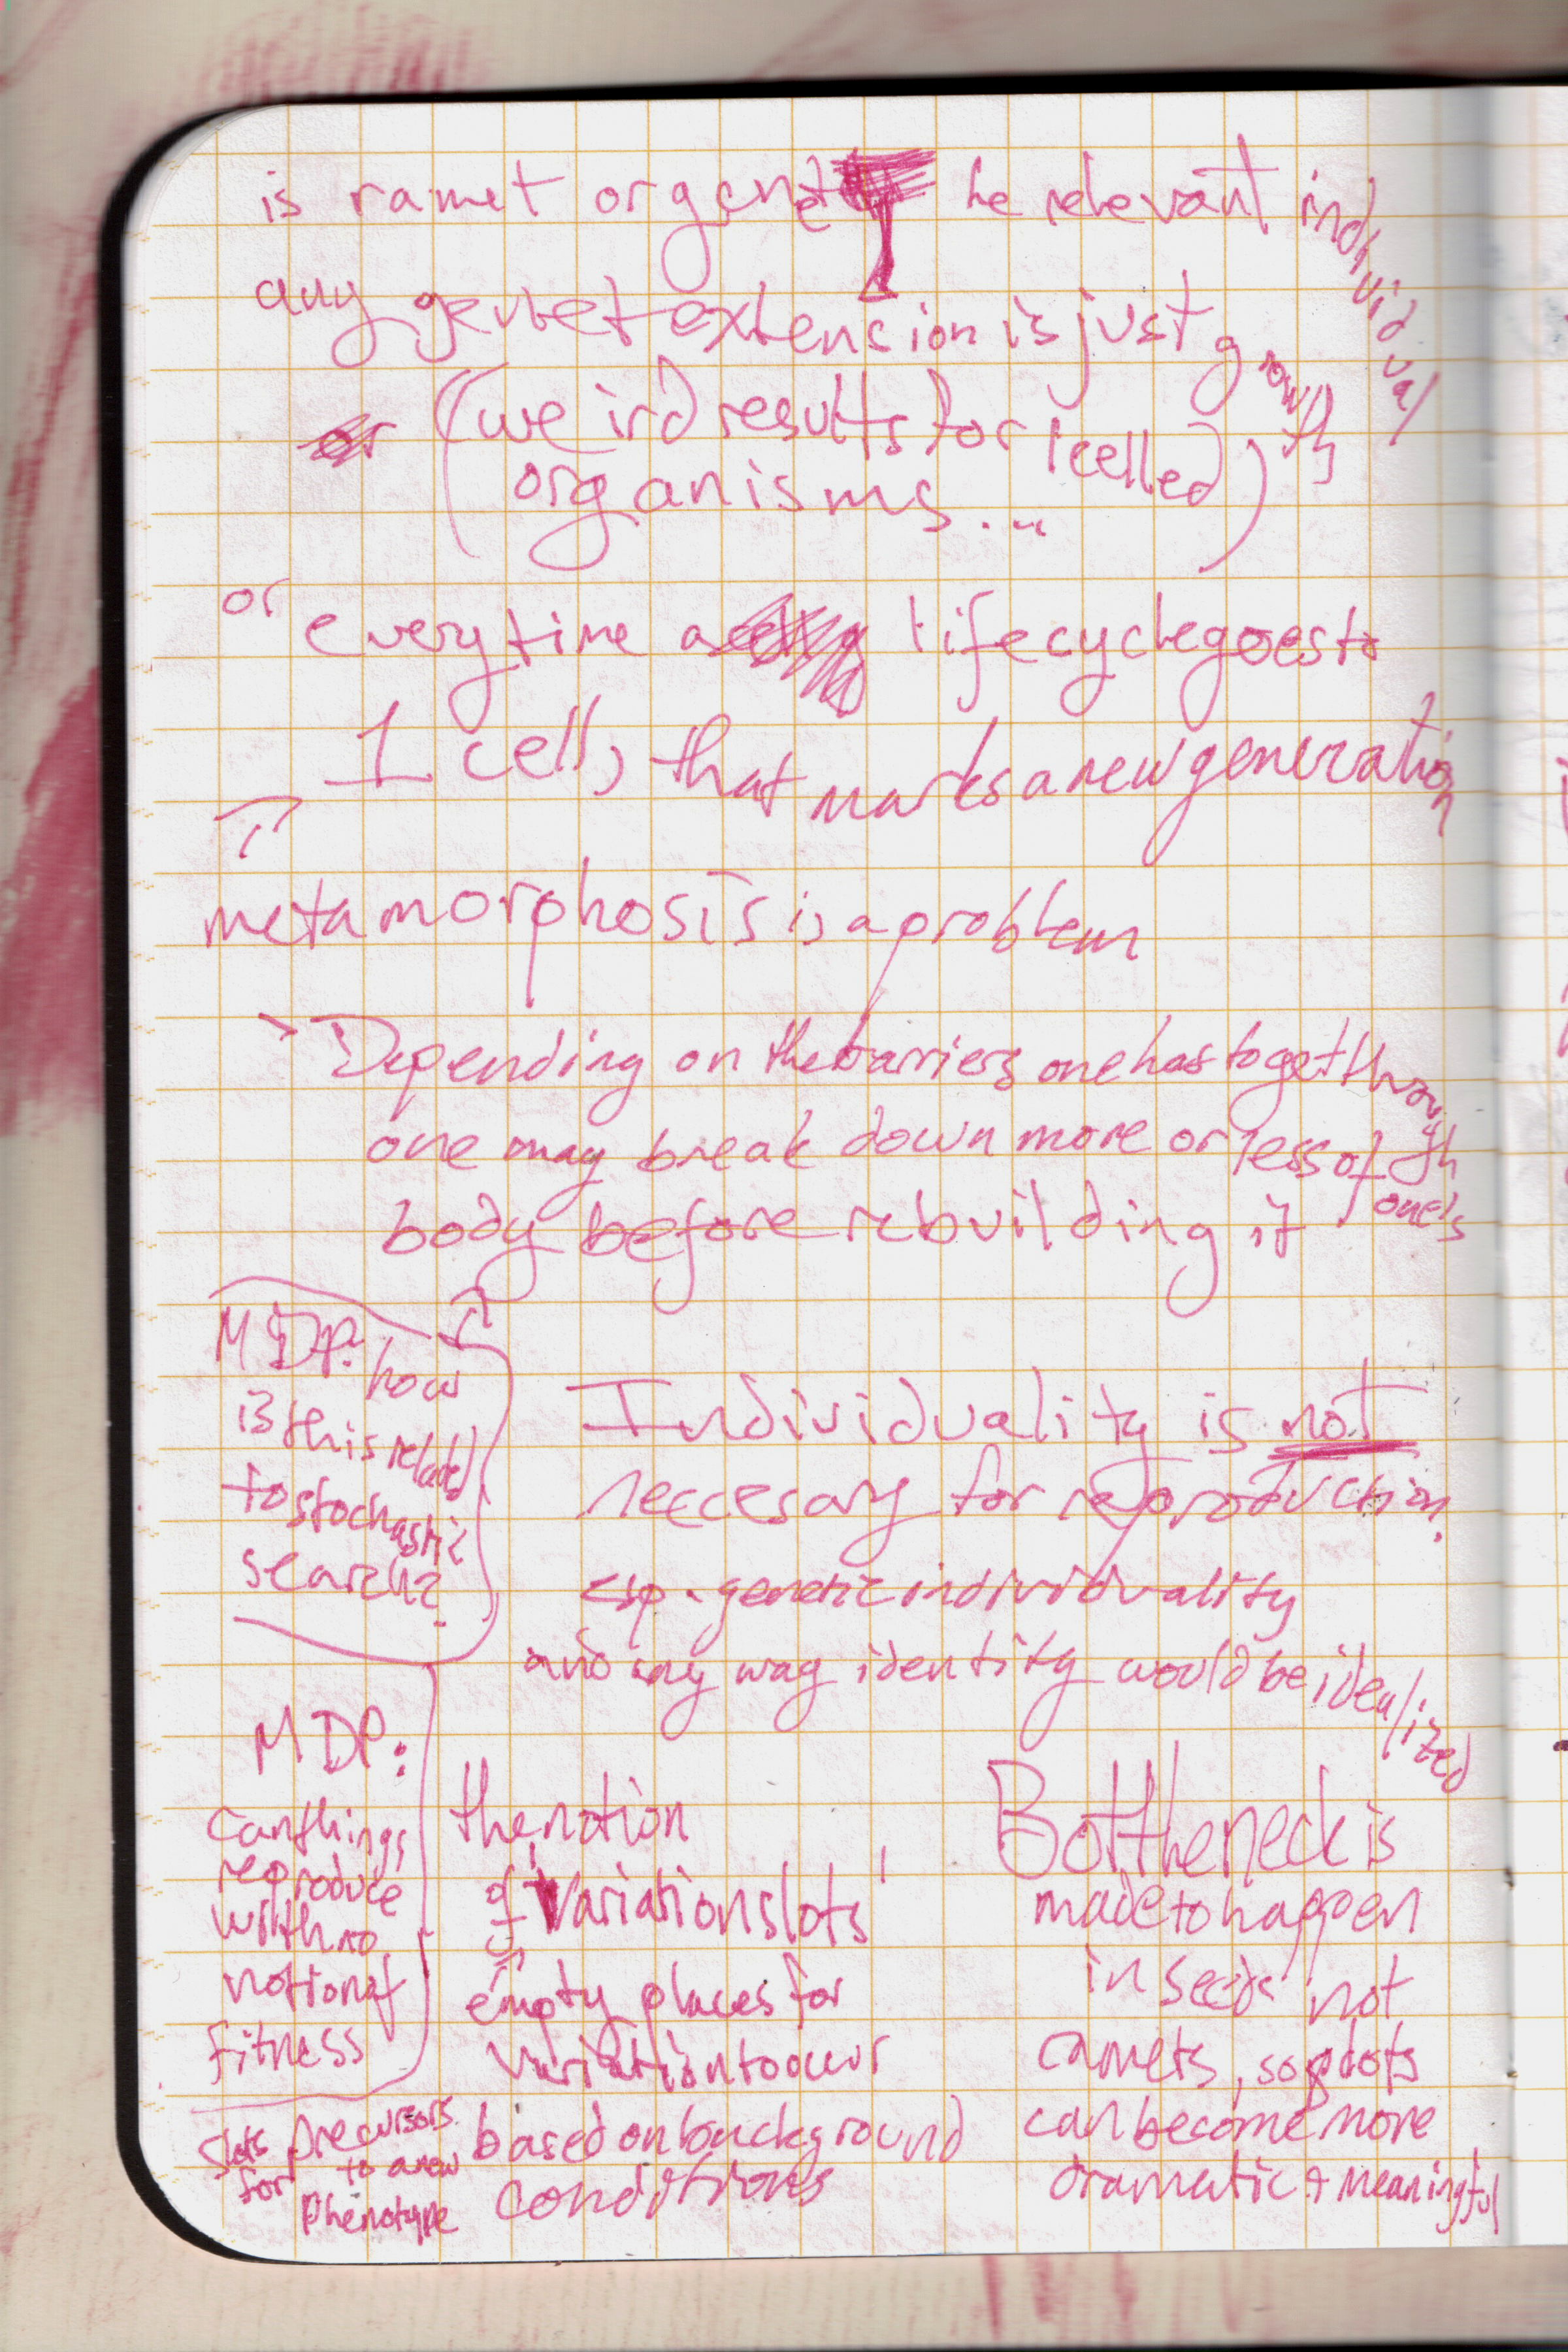 is ramet or genet the relevant individual
any genet extension is just growth
or (weird results for 1 celled
organisms...)
or every time a lifecycle goes to
1 cell, that marks a new generation
metamorphosis is a problem
> Depending on the barriers one has to get through
one may break down more or less of one's
body before rebuilding it
MDP: how
is this related
to stochastic
search?
Individuality is not
neccesary for reproduction.
esp. genetic individuality
and any way identity would be idealized
MDP:
can things
reproduce
with no
notion of
fitness
the notion
of 'variation slots'
empty places for
variation to occur
based on background
conditions
slots for precursors
to a new
phenotype
Bottleneck is
made to happen
in seeds not
ramets, so slots
can become more
dramatic + meaningful